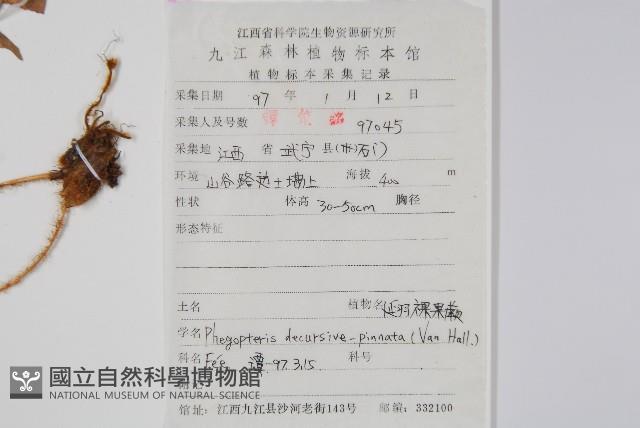 江西省科学院生物资源研究所
九江森林植物标本馆
植物标本采集记录
采集日期 97 年 1 月 12 日
采集人及号数 97045
采集地 江西 省 武宁 县(石门)
环境 山谷路边土墈上 海拔 400 m
性状 体高 30-50cm 胸径
形态特征
土名 植物名 延羽裸果蕨
学名 Phegopteris decursive-pinnata (Van Hall.)
科名 Fée 谭 97.3.15 科号
附记
馆址：江西九江县沙河老街143号 邮编：332100
國立自然科學博物館
NATIONAL MUSEUM OF NATURAL SCIENCE